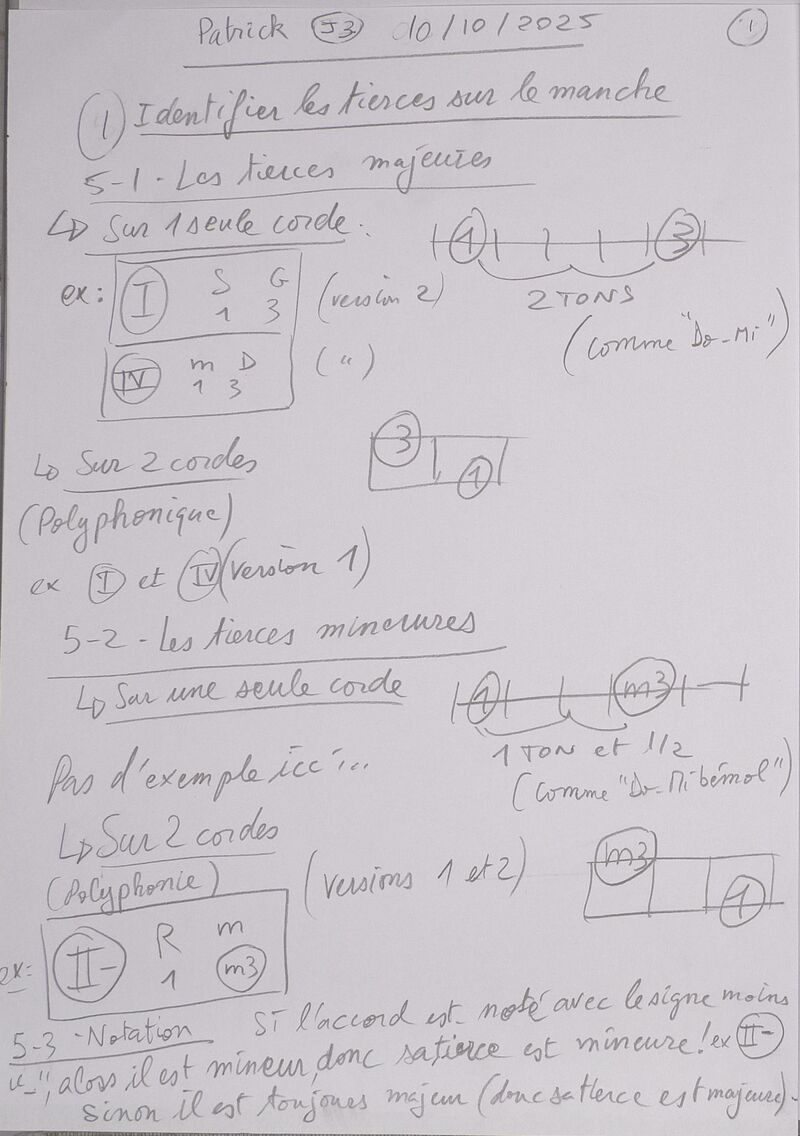 Patrick J3 10/10/2025 1
1 Identifier les tierces sur le manche
5-1. Les tierces majeures
↳ Sur 1 seule corde.
1 3
ex: I S G (version 2)
1 3
2 TONS
(comme "Do-Mi")
IV m D (")
1 3
↳ Sur 2 cordes
3
1
(Polyphonique)
ex I et IV (version 1)
5-2-Les tierces mineures
↳ Sur une seule corde
1 m3
1 TON et 1/2
Pas d'exemple ici...
(comme "Do-Mi bémol")
↳ Sur 2 cordes
(Polyphonie) (versions 1 et 2)
m3
1
ex: II- R m
1 m3
5-3-Notation Si l'accord est noté avec le signe moins
"-", alors il est mineur, donc sa tierce est mineure! ex II-
Sinon il est toujours majeur (donc sa tierce est majeure).